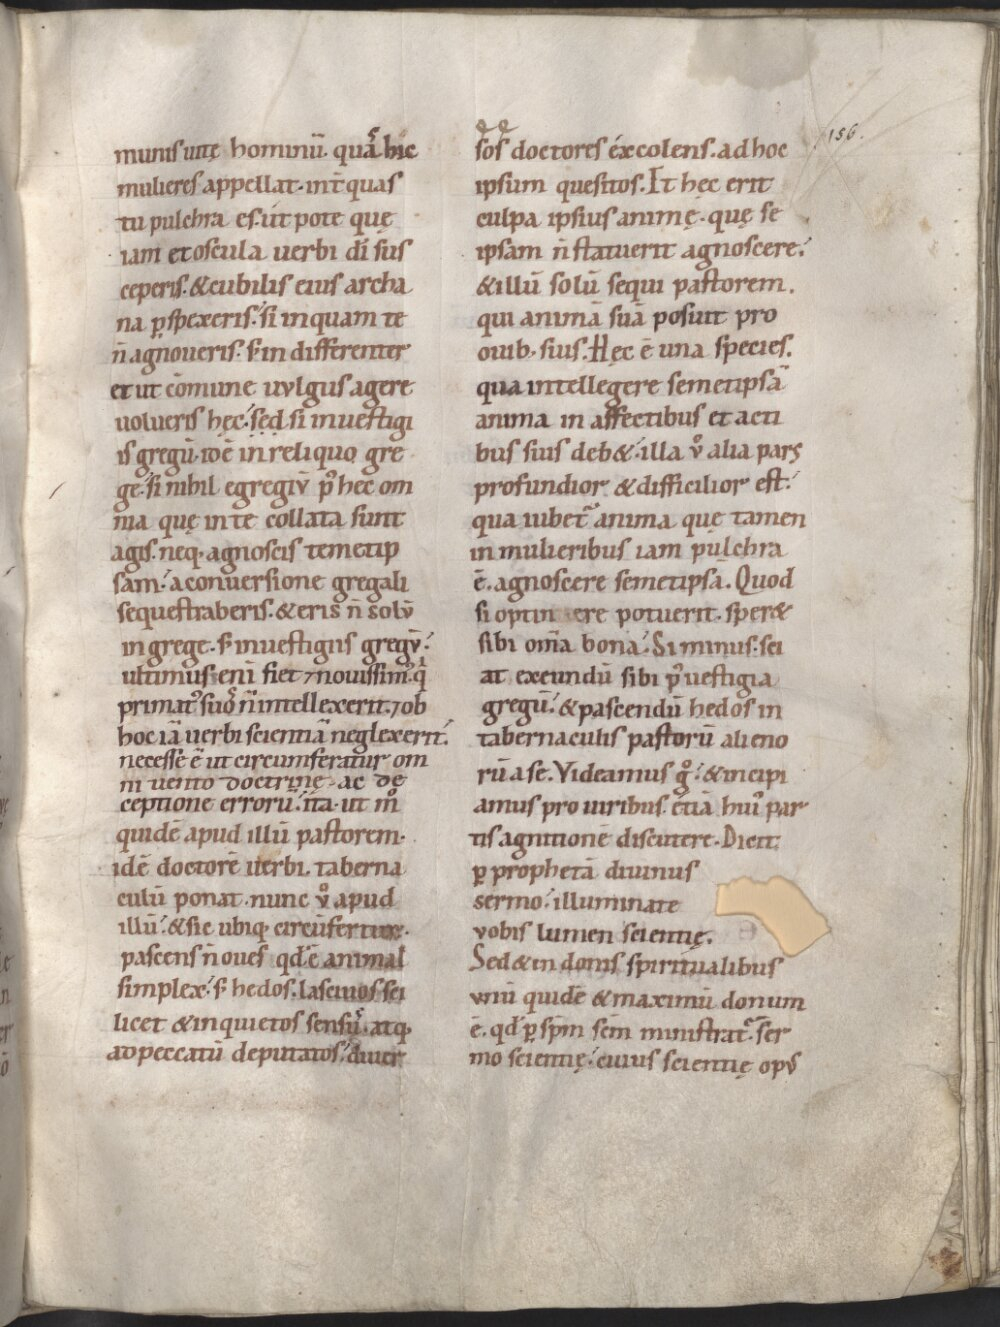 156.
munis uitę hominū. quā hic
mulieres appellat. int̄ quas
tu pulchra es. ut pote quę
iam et oscula uerbi dī sus
ceperis. & cubilis eius archa
na ꝑspexeris. si inquam te
n̄ agnoueris. s̄ indifferenter
et ut cōmune uulgus agere
uolueris hęc. sed si in uestigi
is gregū. id ē in reliquo gre
ge. si nihil egregiū p̄ hec om
nia quę in te collata sunt
agis. neq; agnoscis temetip
sam. a conuersione gregali
sequestraberis. & eris n̄ solū
in grege. s̄ in uestigiis gregū.
ultimus enī fiet ⁊ nouissim᾿. qͥ
primat᾿ suo n̄ intellexerit. ⁊ ob
hoc iā uerbi scientiā neglexerit.
necesse ē ut circumferatur om
ni uento doctrinę ac de
ceptione errorū. ita ut mͦ
quidē apud illū pastorem.
idē doctorē uerbi. taberna
culū ponat. nunc ů apud
illū. & sic ubiq; circūfertur.
pascens n̄ oues qd̄ ē animal
simplex. s̄ hedos. lasciuos sci
licet & inquietos sensus. atq;
ad peccatū deputatos. diuer
sos doctores excolens. ad hoc
ipsum quesitos. Et hęc erit
culpa ipsius animę. quę se
ipsam n̄ statuerit agnoscere.
& illū solū sequi pastorem.
qui animā suā posuit pro
ouib. suis. Hęc ē una species.
qua intellegere semetipsā
anima in affectibus et acti
bus suis deb&. illa ů alia pars
profundior & difficilior est.
qua iubet᾿ anima quę tamen
in mulieribus iam pulchra
ē. agnoscere semetipsā. Quod
si optin ere potuerit. sper&
sibi om̄a bona. Si minus. sci
at exeundū sibi p̄ uestigia
gregū. & pascendū hedos in
tabernaculis pastorū alieno
rū a se. Videamus gͦ. & incipi
amus pro uiribus. etiā hui᾿ par
tis agnitionē discutere. Dicit
ꝑ prophetā diuinus
sermo. illuminate
uobis lumen scientię.
Sed & in donis spiritualibus
unū quidē & maximū donum
ē. qd̄ ꝑ sp̄m sc̄m ministrat᾿. ser
mo scientię. cuius scientię opus